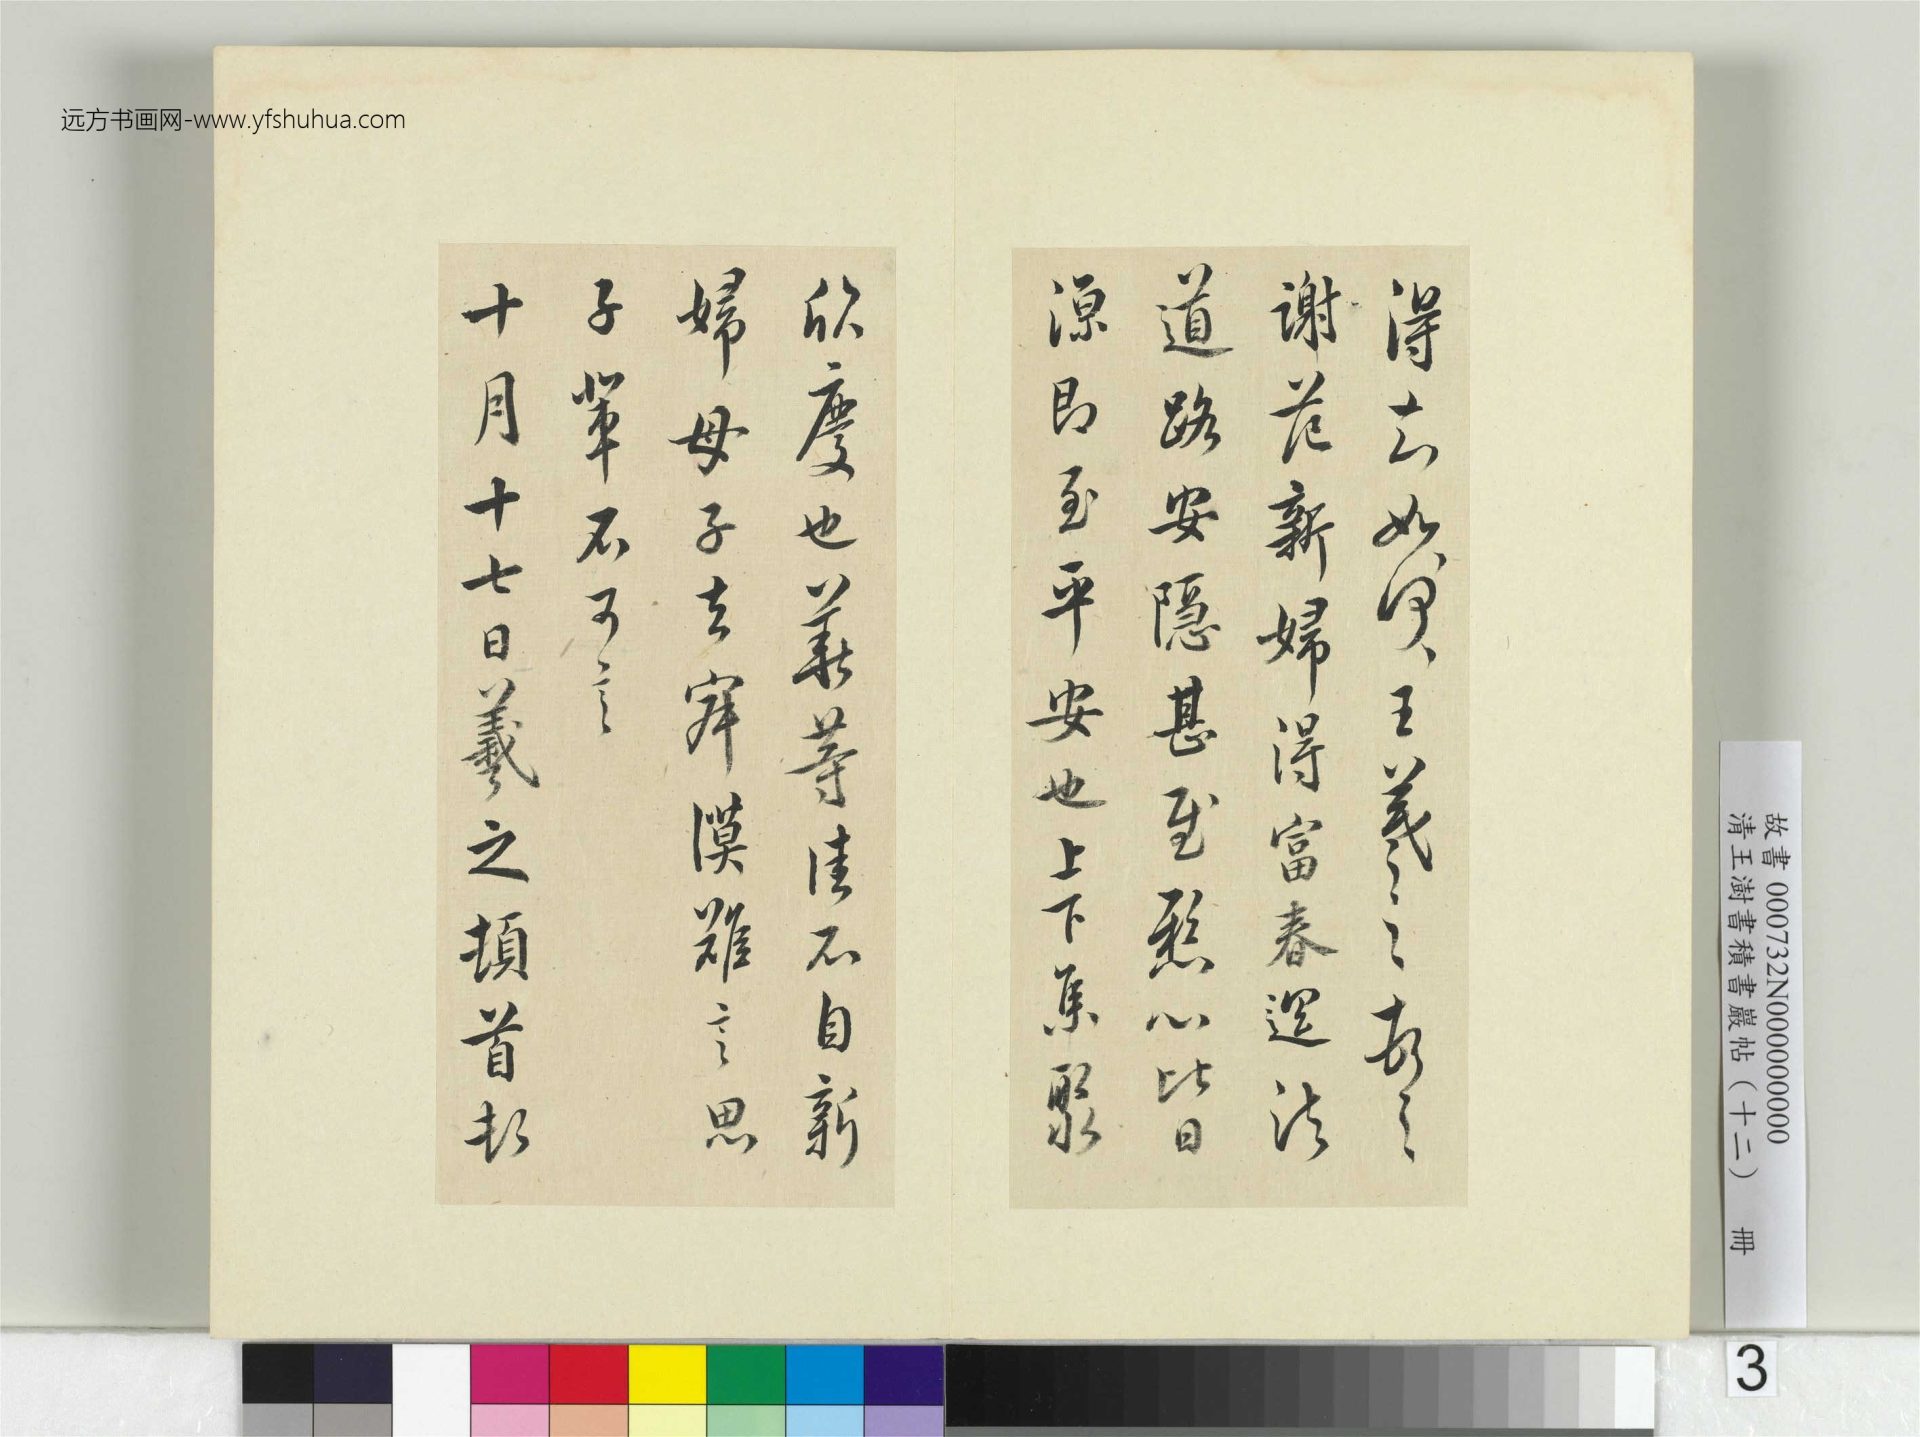 得去如王羲之
謝范新婦得富春還諸
道路安隱甚至慰心比日
涼即至平安也上下集聚
欣慶也華等佳不自新
婦母子去寂漠難言思
子輩不可言
十月十七日羲之頓首頓
远方书画网-www.yfshuhua.com
故書 000732N000000000
清王澍書積書巖帖（十二） 冊
3